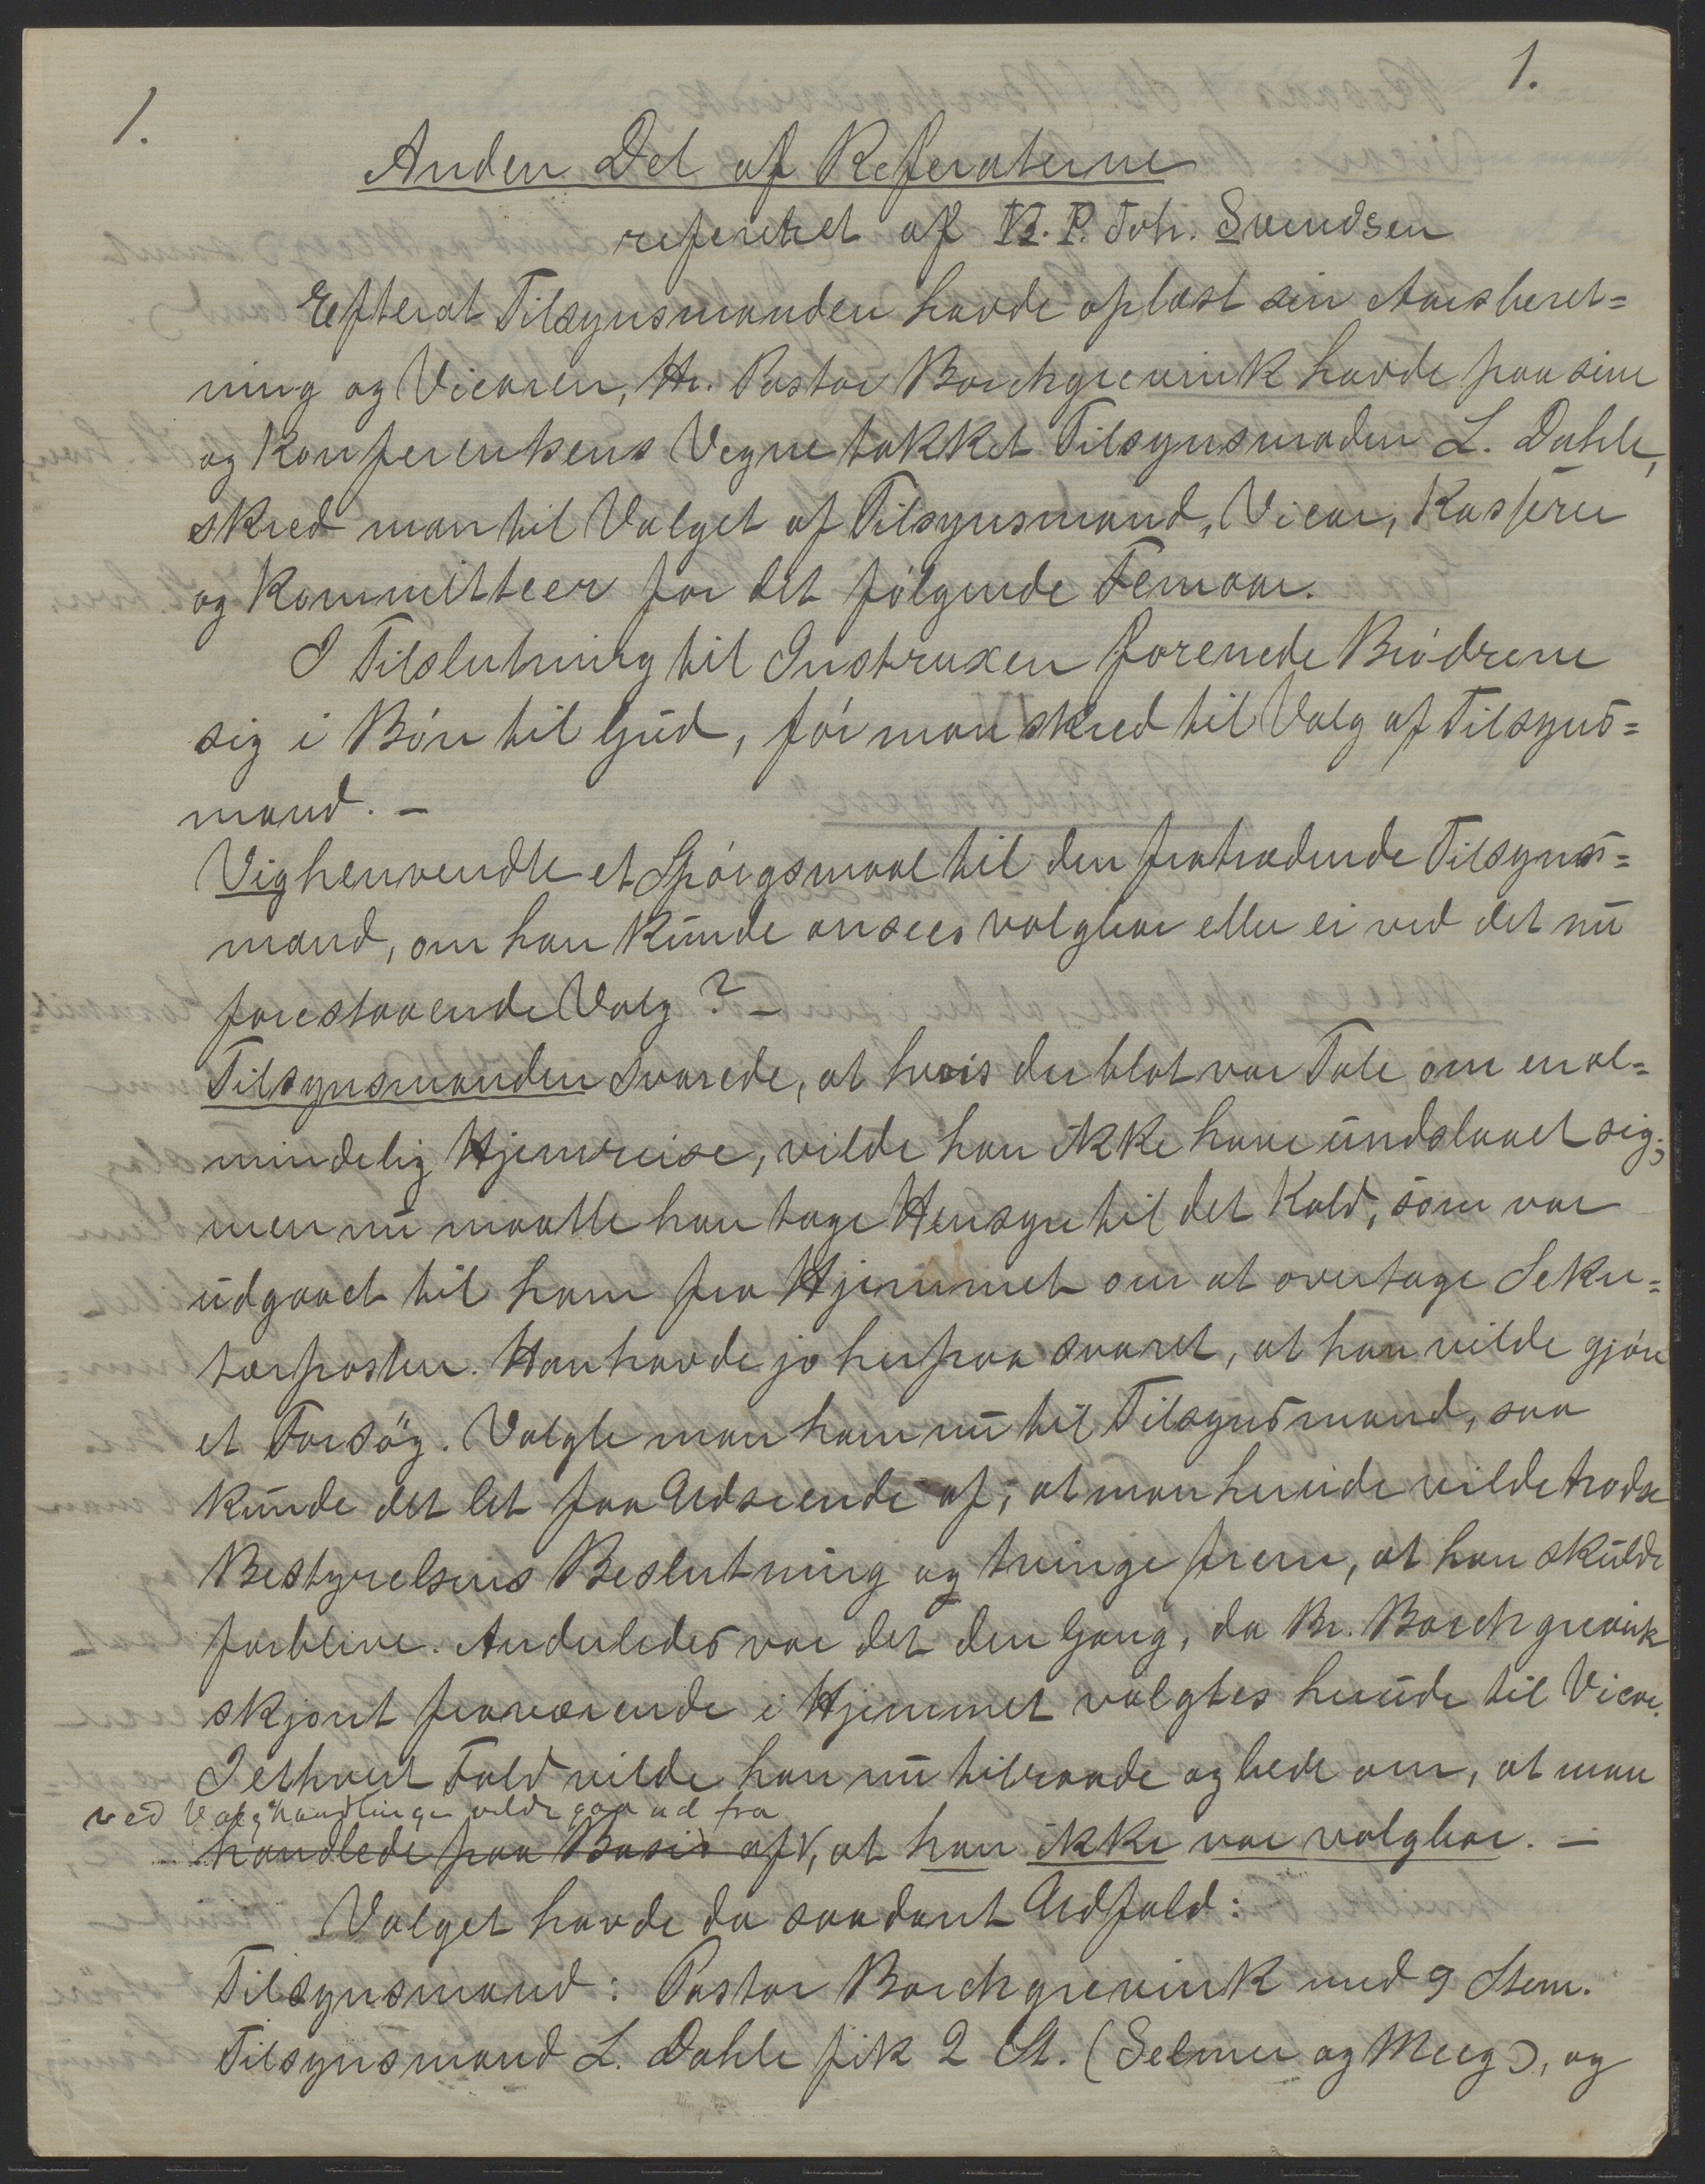 1.
1.
Anden Del af Referaterne
refereret af K. P. Joh. Svendsen
Efterat Tilsynsmanden havde oplæst sin Aarsberet=
ning og Vicaren, Hr. Pastor Borchgrevink havde paa sine
og Konferentsens Vegne takket Tilsynsmaden L. Dahle,
skred man til Valget af Tilsynsmand, Vicar, Kasserer
og Kommitteer for det følgende Femaar.
I Tilslutning til Instruxen forenede Brødrene
sig i Bøn til Gud, før man skred til Valg af Tilsyns=
mand. –
Vig henvendte et Spørgsmaal til den fratrædende Tilsyns=
mand, om han kunde ansees valgbar eller ei ved det nu
forestaaende Valg? –
Tilsynsmanden svarede, at hvis der blot var Tale om en al=
mindelig Hjemreise, vilde han ikke have undslaaet sig;
men nu maatte han tage Hensyn til det Kald, som var
udgaaet til ham fra Hjemmet om at overtage Sekre=
tærposten. Han havde jo herpaa svaret, at han vilde gjøre
et Forsøg. Valgte man ham nu til Tilsynsmand, saa
kunde det let faa Udseende af, at man herude vilde trodse
Bestyrelsens Beslutning og tvinge frem, at han skulde
forblive. Anderledes var det den Gang, da Br. Borchgrevink
skjønt fraværende i Hjemmet valgtes herude til Vicar.
I ethvert Fald vilde han nu tilraade og bede om, at man
ved Valghandlingen vilde gaa ud fra
handlede paa Basis af, at han ikke var valgbar. –
Valget havde da saadant Udfald:
Tilsynsmand: Pastor Borchgrevink med 9 Stem.
Tilsynsmand L. Dahle fik 2 St. (Selmer og Meeg), og